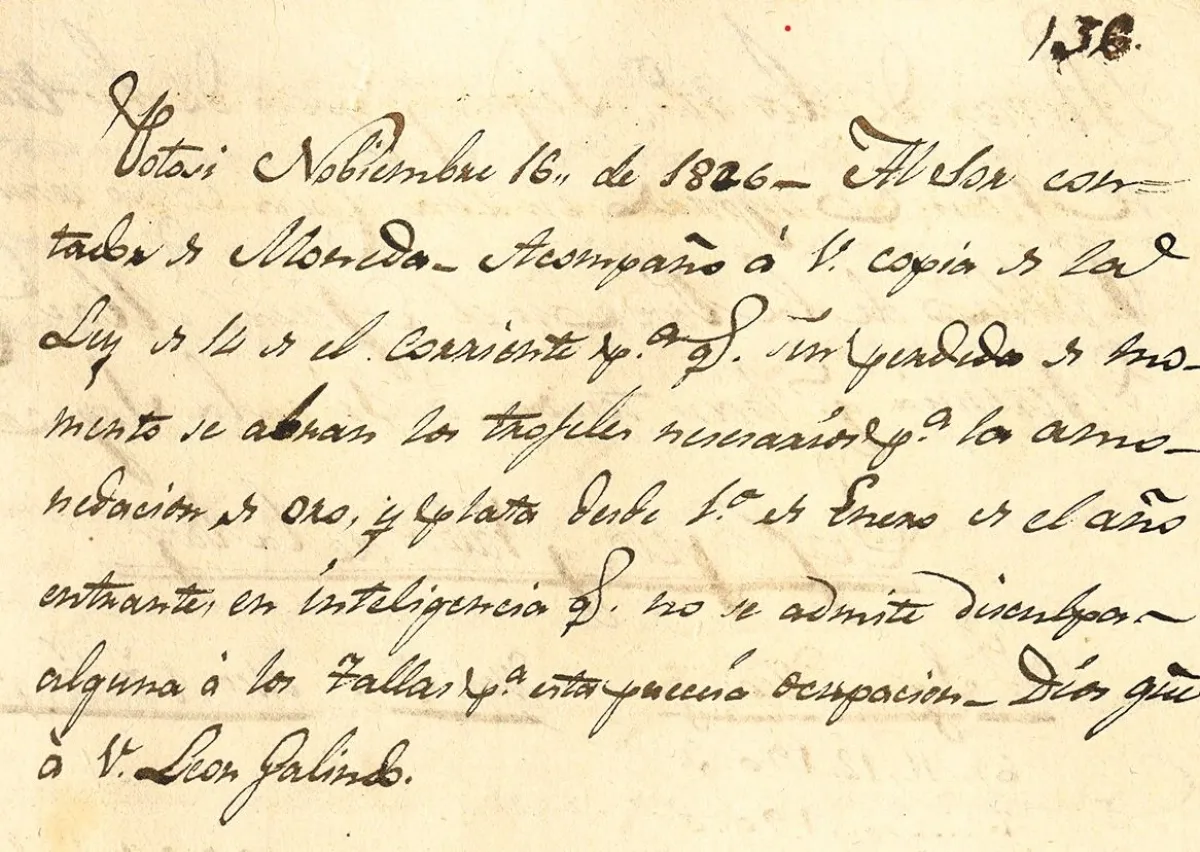 136.
Potosi Nobiembre 16,, de 1826 – Al Sor con=
tador de Moneda – Acompaño à V. copia de la
Ley de 14 de el corriente p.ª q. sin perdida de mo-
mento se abran los troqueles nesesarios p.ª la amo-
nedacion de oro, y plata desde 1.º de Enero de el año
entrante, en inteligencia q. no se admite disculpa –
alguna à los Tallas p.ª esta ocupacion – Dios gũe
à V. Leon Galindo.